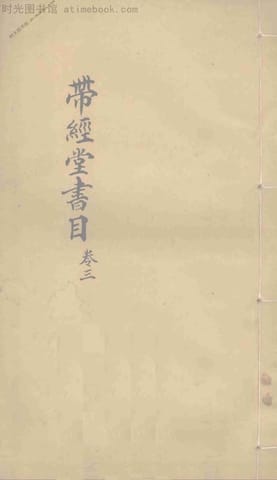 时光图书馆 · atimebook.com
帶經堂書目
卷三